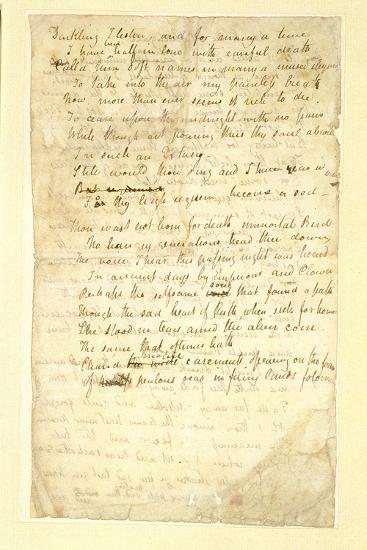 Darkling I listen, and for many a time
I have been half in love with easeful death
Call'd him soft names in many a mused rhyme
To take into the air my painless breath
Now, more than ever seems it rich to die
To cease upon the midnight with no pain
While thou art pouring thus thy soul abroad
In such an Extasy.
Still would thou sing and I have ears in vain
For thy high requiem become a sod
Thou wast not born for death immortal Bird
No hungry generations tread thee down
The voice I hear this passing night was heard
In ancient days by Emperour and Clown
Perhaps the selfsame song that found a path
Through the sad heart of Ruth when sick for home
She stood in tears amid the alien corn
The same that ofttimes hath
Charm'd magic casements opening on the foam
Of perilous seas in fairy lands forlorn